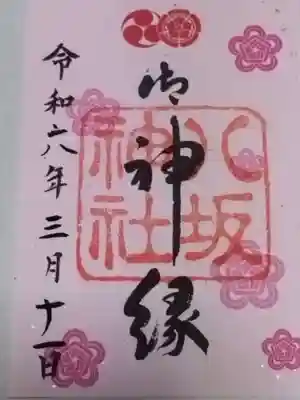 御神縁
八坂
神社
令和六年三月十一日